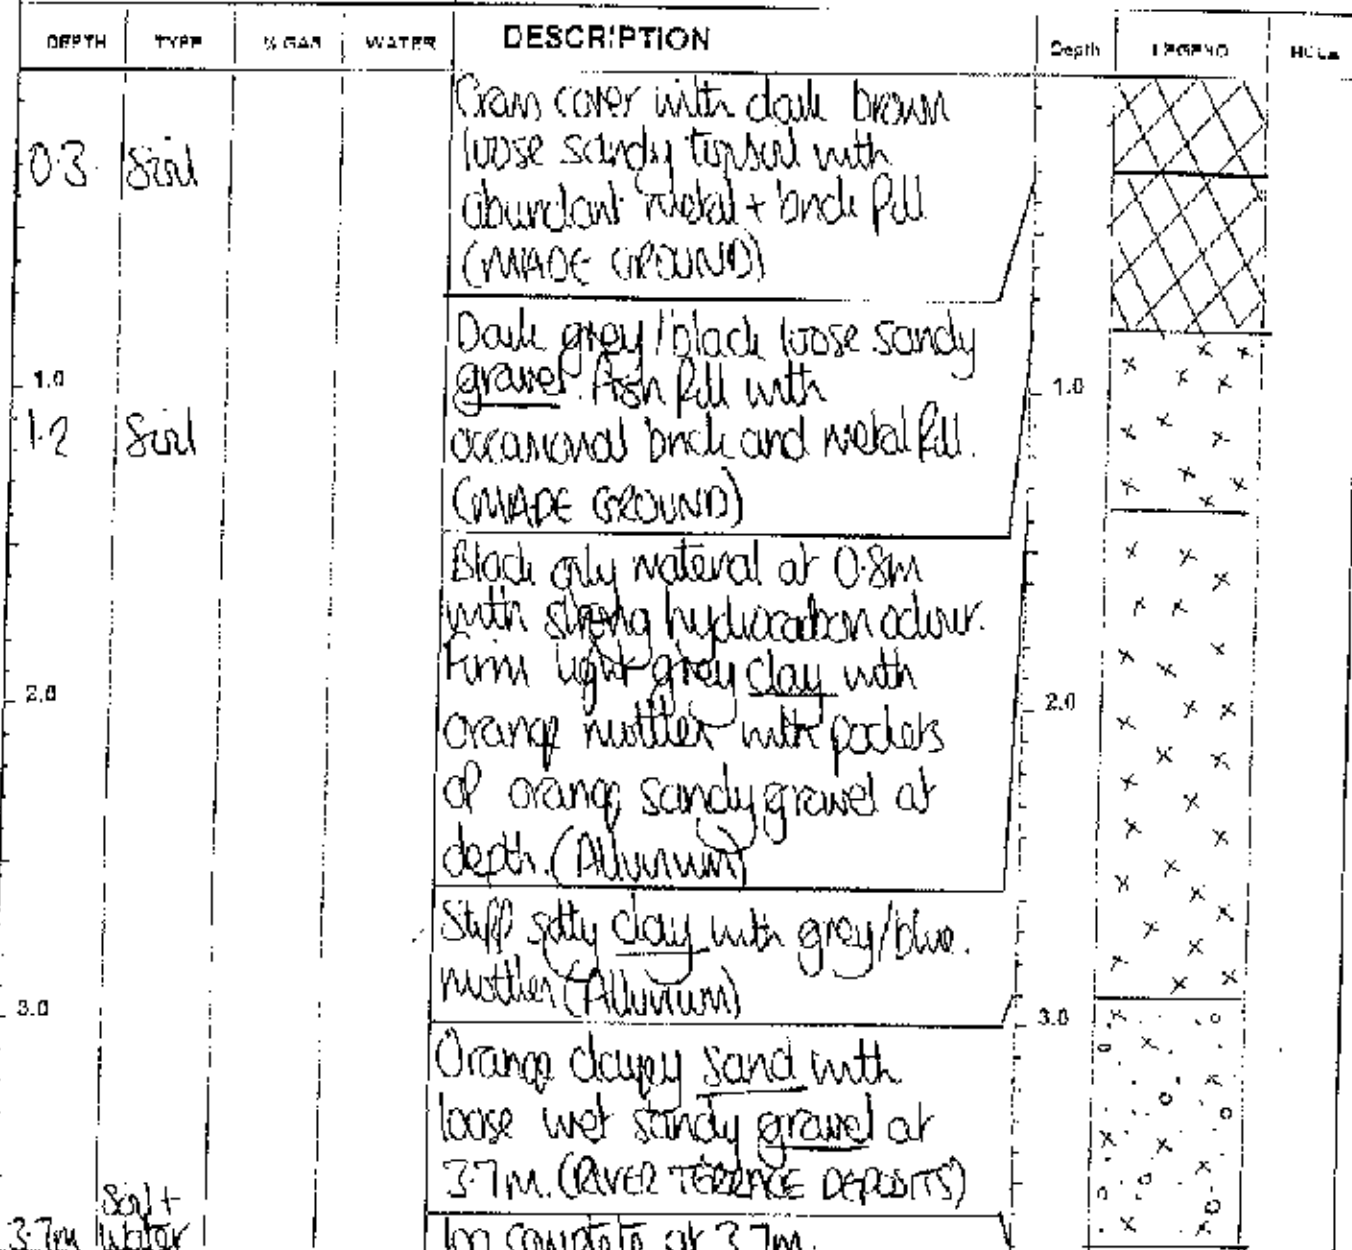 DEPTH TYPE % GAS WATER DESCRIPTION Depth LEGEND HOLE
Grass cover with dark brown
0.3 Soil loose sandy topsoil with
abundant metal + brick fill
(MADE GROUND)
Dark grey/black loose sandy
1.0 gravel. Ash fill with 1.0
1.2 Soil occasional brick and metal fill.
(MADE GROUND)
Black oily material at 0.8m
with strong hydrocarbon odour.
Firm light grey clay with
2.0 orange mottles with pockets 2.0
of orange sandy gravel at
depth. (Alluvium)
Stiff silty clay with grey/blue.
mottles (Alluvium)
3.0 3.0
Orange clayey sand with
loose wet sandy gravel at
3.7m. (RIVER TERRACE DEPOSITS)
Soil +
3.7m Water Log complete at 3.7m.